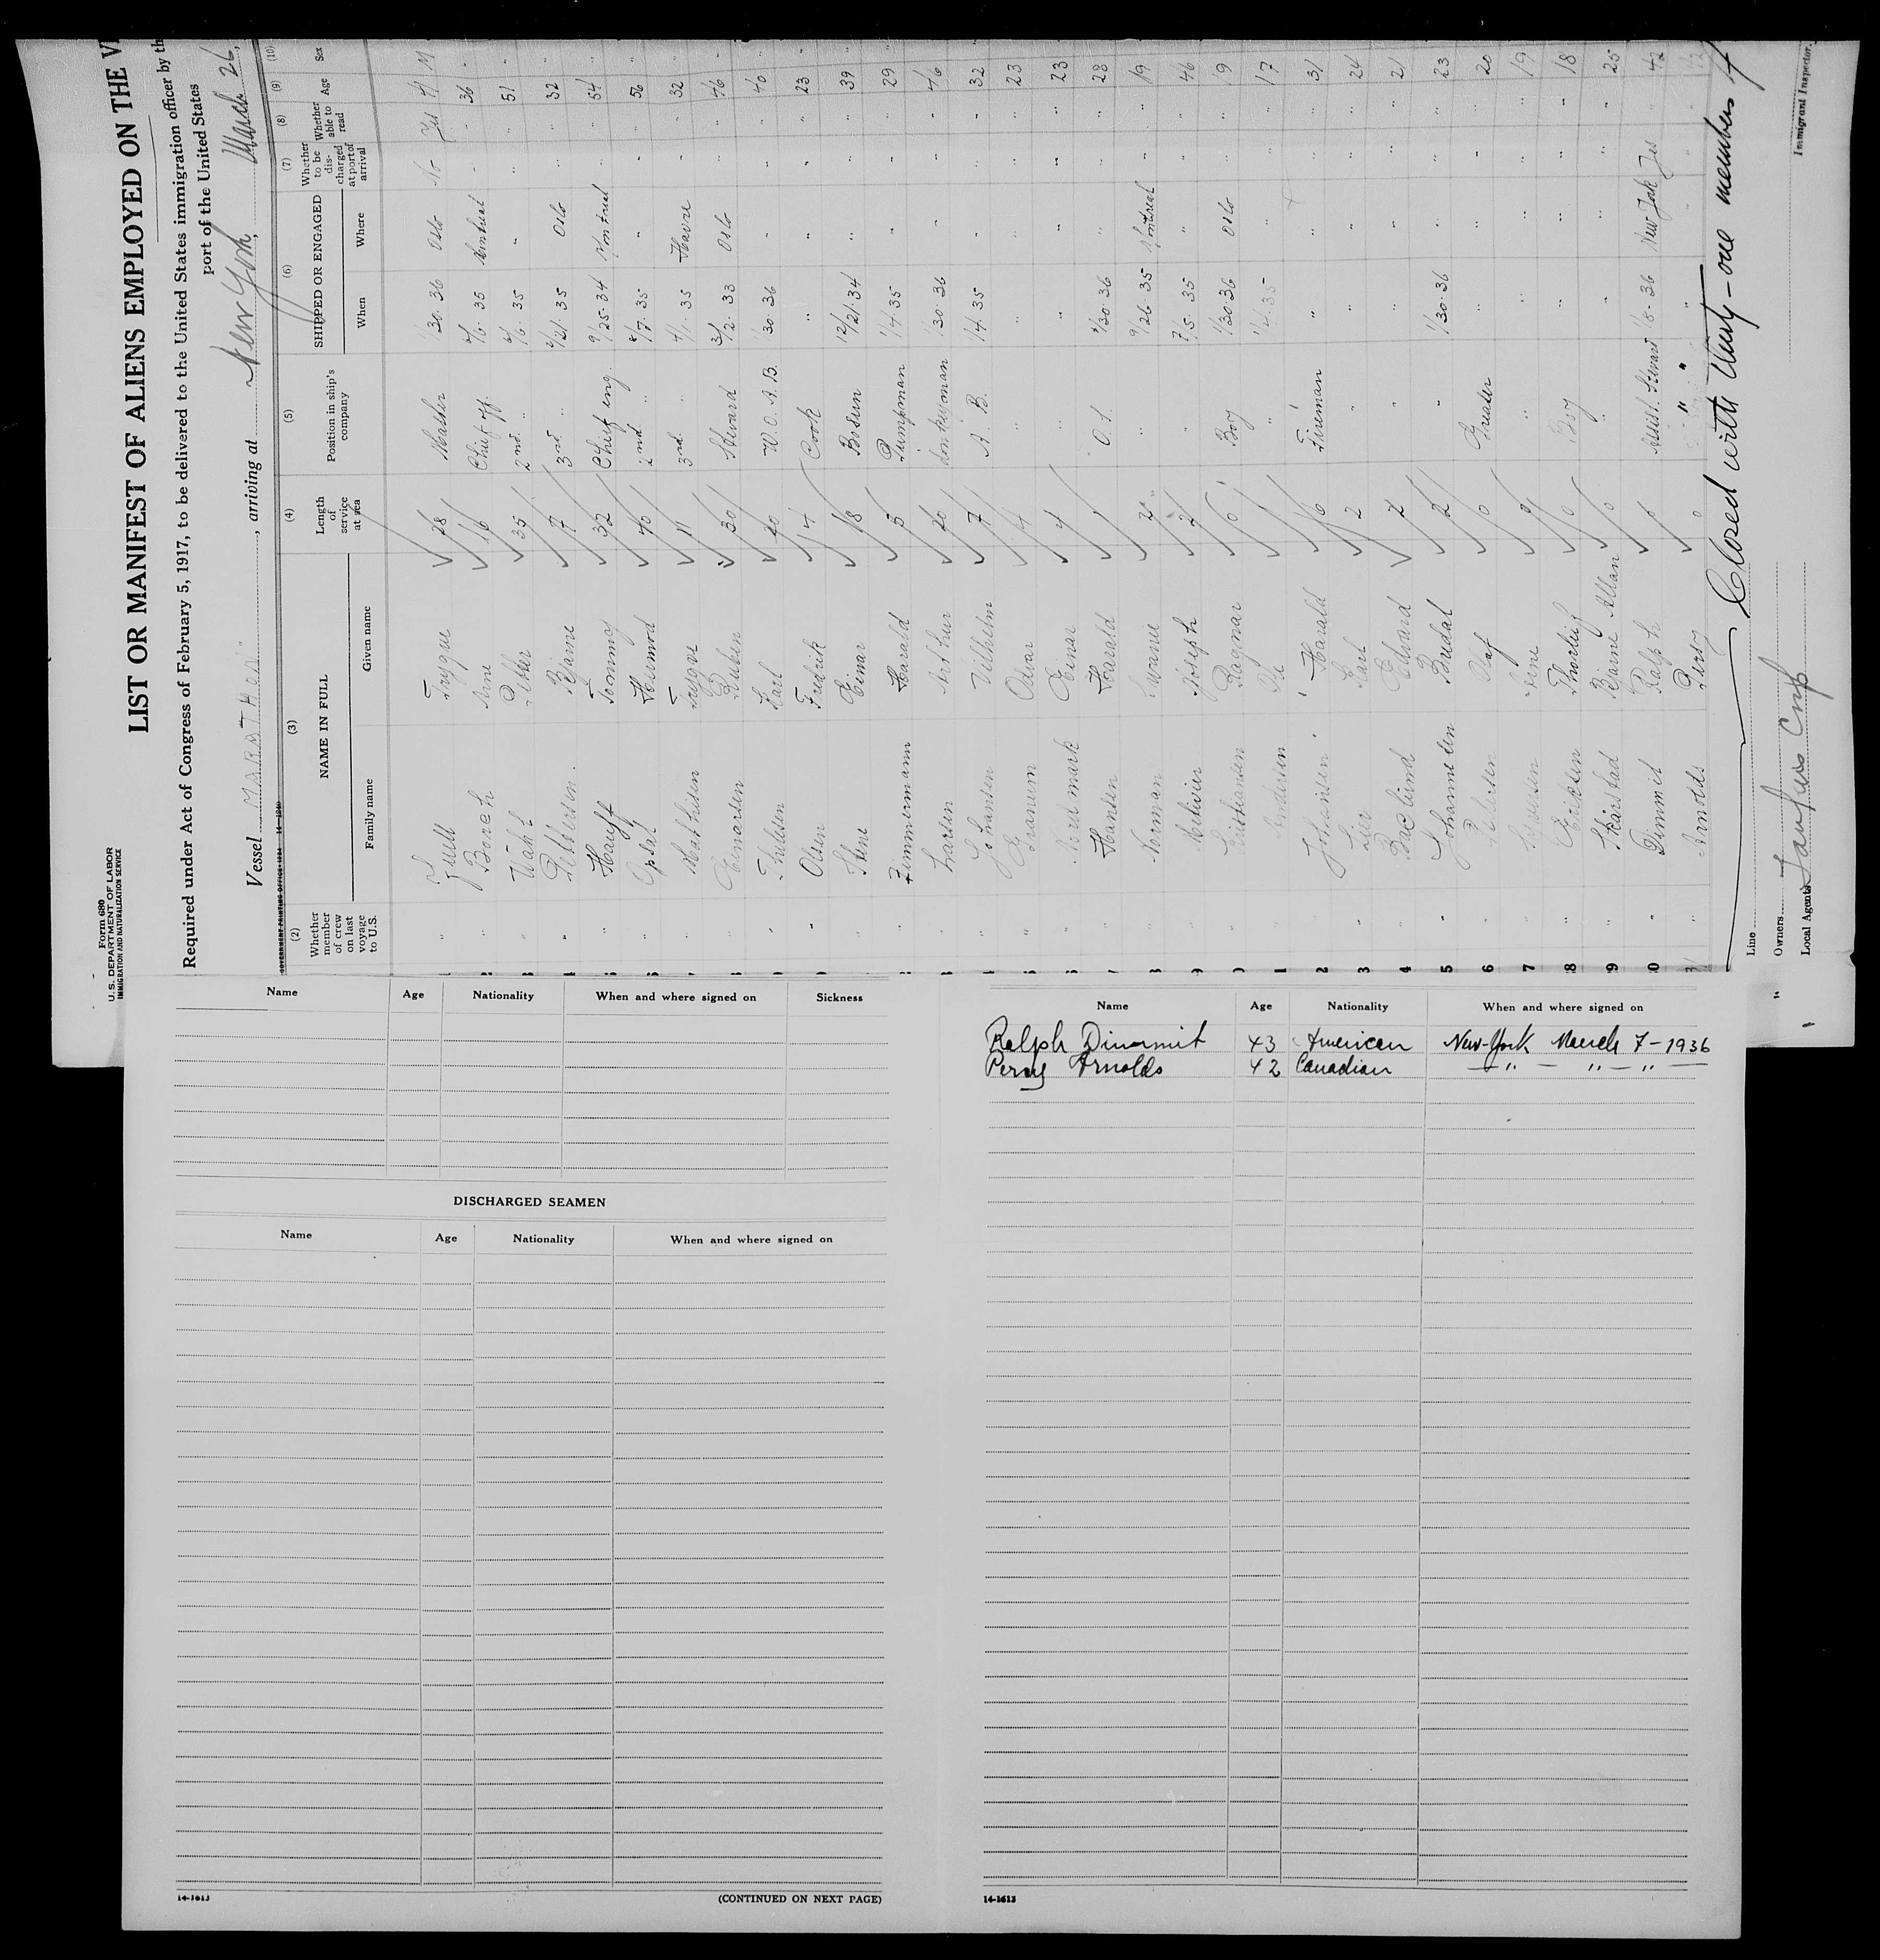 Form 680
U. S. DEPARTMENT OF LABOR
IMMIGRATION AND NATURALIZATION SERVICE
LIST OR MANIFEST OF ALIENS EMPLOYED ON THE
Required under Act of Congress of February 5, 1917, to be delivered to the United States immigration officer by th
port of the United States
Vessel MARATHON, arriving at New York, March 26,
GOVERNMENT PRINTING OFFICE
(2) (3) (4) (5) (6) (7) (8) (9) (10)
Whether member of crew on last voyage to U.S.
NAME IN FULL
Family name Given name
Length of service at sea
Position in ship's company
SHIPPED OR ENGAGED
When Where
Whether to be discharged at port of arrival
Whether able to read
Age Sex
" Juell Trygve 28 Master 1/30.36 Oslo No Yes 41 M
" Borech Arne 16 Chief off. 35 Montreal " " 36 "
" Petter 35 2nd " 35 " " " 51 "
" Petterson Bjarne 7 3rd " 35 Oslo " " 32 "
" Hauff Tommy 32 Chief eng. 9/25.34 Montreal " " 54 "
" 40 2nd " 35 " " " 56 "
" Mathisen Trygve 11 3rd " 35 Havre " " 32 "
" Einarsen 30 Steward 3/2.33 Oslo " " 46 "
" Karl 20 1/30.36 " " " 40 "
" Olsen Fredrik 4 Cook " " " " 23 "
" Stene Einar 18 Bosun 12/21.34 " " " 39 "
" Zimmermann Harald 5 Pumpman 1/4.35 " " " 29 "
" Larsen Arthur 20 Donkeyman 1/30.36 " " " 46 "
" Johansen Vilhelm 7 A. B. 1/4.35 " " " 32 "
" Granum Odvar 4 " " " " " 23
" Nordmark Einar 4 " " " " " 23
" Hansen Harald 1 O. S. 1/30.36 " " " 28
" Norman 2 " 9/26.35 Montreal " " 19
" Metivier Joseph 2 " 7/5.35 " " " 46
" Kristiansen Ragnar 0 Boy 1/30.36 Oslo " " 19
" Andersen 1 " 1/4.35 " " " 17
" Johansen Harald 6 Fireman " " " " 31
" Lier Karl 2 " " " " " 24
" Backlund Edvard 2 " " " " " 21
" Johannesen Bredal 2 " 1/30.36 " " " 23
" Petersen Olaf 0 Greaser " " " " 20
" Arne 0 " " " " " 19
" Eriksen Thorleif 0 Boy " " " " 18
" Skarstad Bjarne Allan 0 " " " " " 25
" Dinnmit Ralph 0 Assist. Steward 1/8.36 New York Yes " 42
" Arnolds Percy 0 " " " " " "
Closed with thirty-one members
Line
Owners
Local Agents
Immigrant Inspector.
Name Age Nationality When and where signed on Sickness
DISCHARGED SEAMEN
Name Age Nationality When and where signed on
14-1613
(CONTINUED ON NEXT PAGE)
Name Age Nationality When and where signed on
Ralph Dinnmit 43 American New-York March 7-1936
Percy Arnolds 42 Canadian — " — " — " —
14-1613